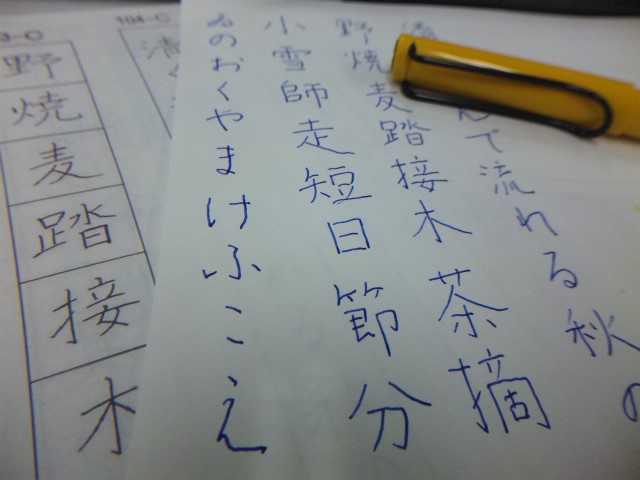 んで流れる秋の
野焼麦踏接木茶摘
小雪師走短日節分
ゐのおくやまけふこえ
104-C
清
3-C
野焼麦踏接木